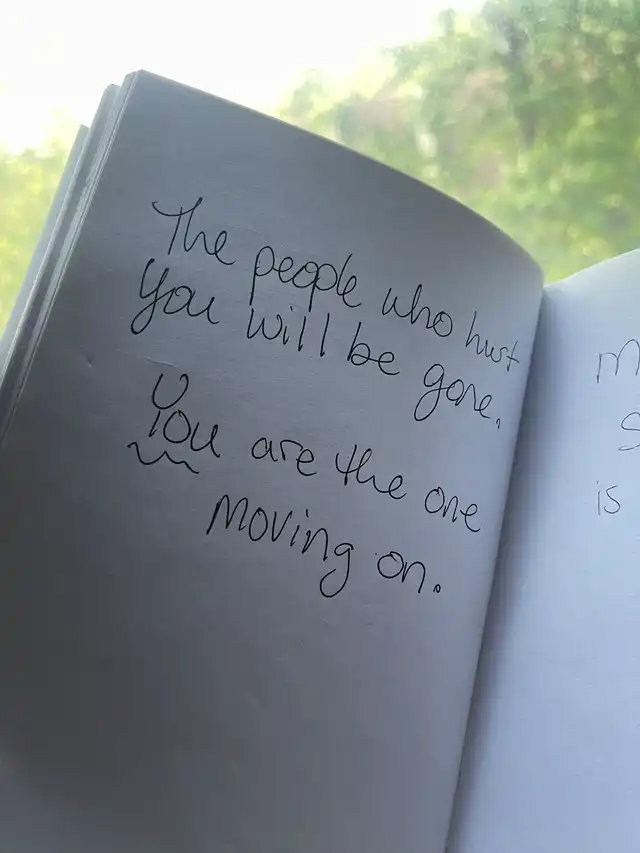 The people who hurt
You will be gone.
You are the one
moving on.
M
S
is